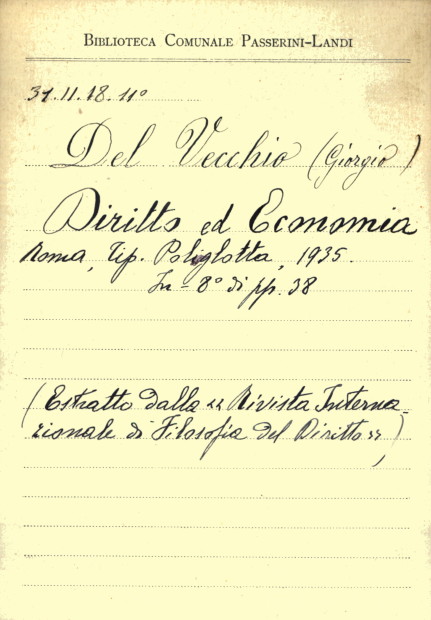 BIBLIOTECA COMUNALE PASSERINI-LANDI
31.II.18.11º
Del Vecchio (Giorgio)
Diritto ed Economia
Roma, Tip. Poliglotta, 1935.
In-8º di pp. 38
(Estratto dalla "Rivista Interna-
zionale di Filosofia del Diritto")